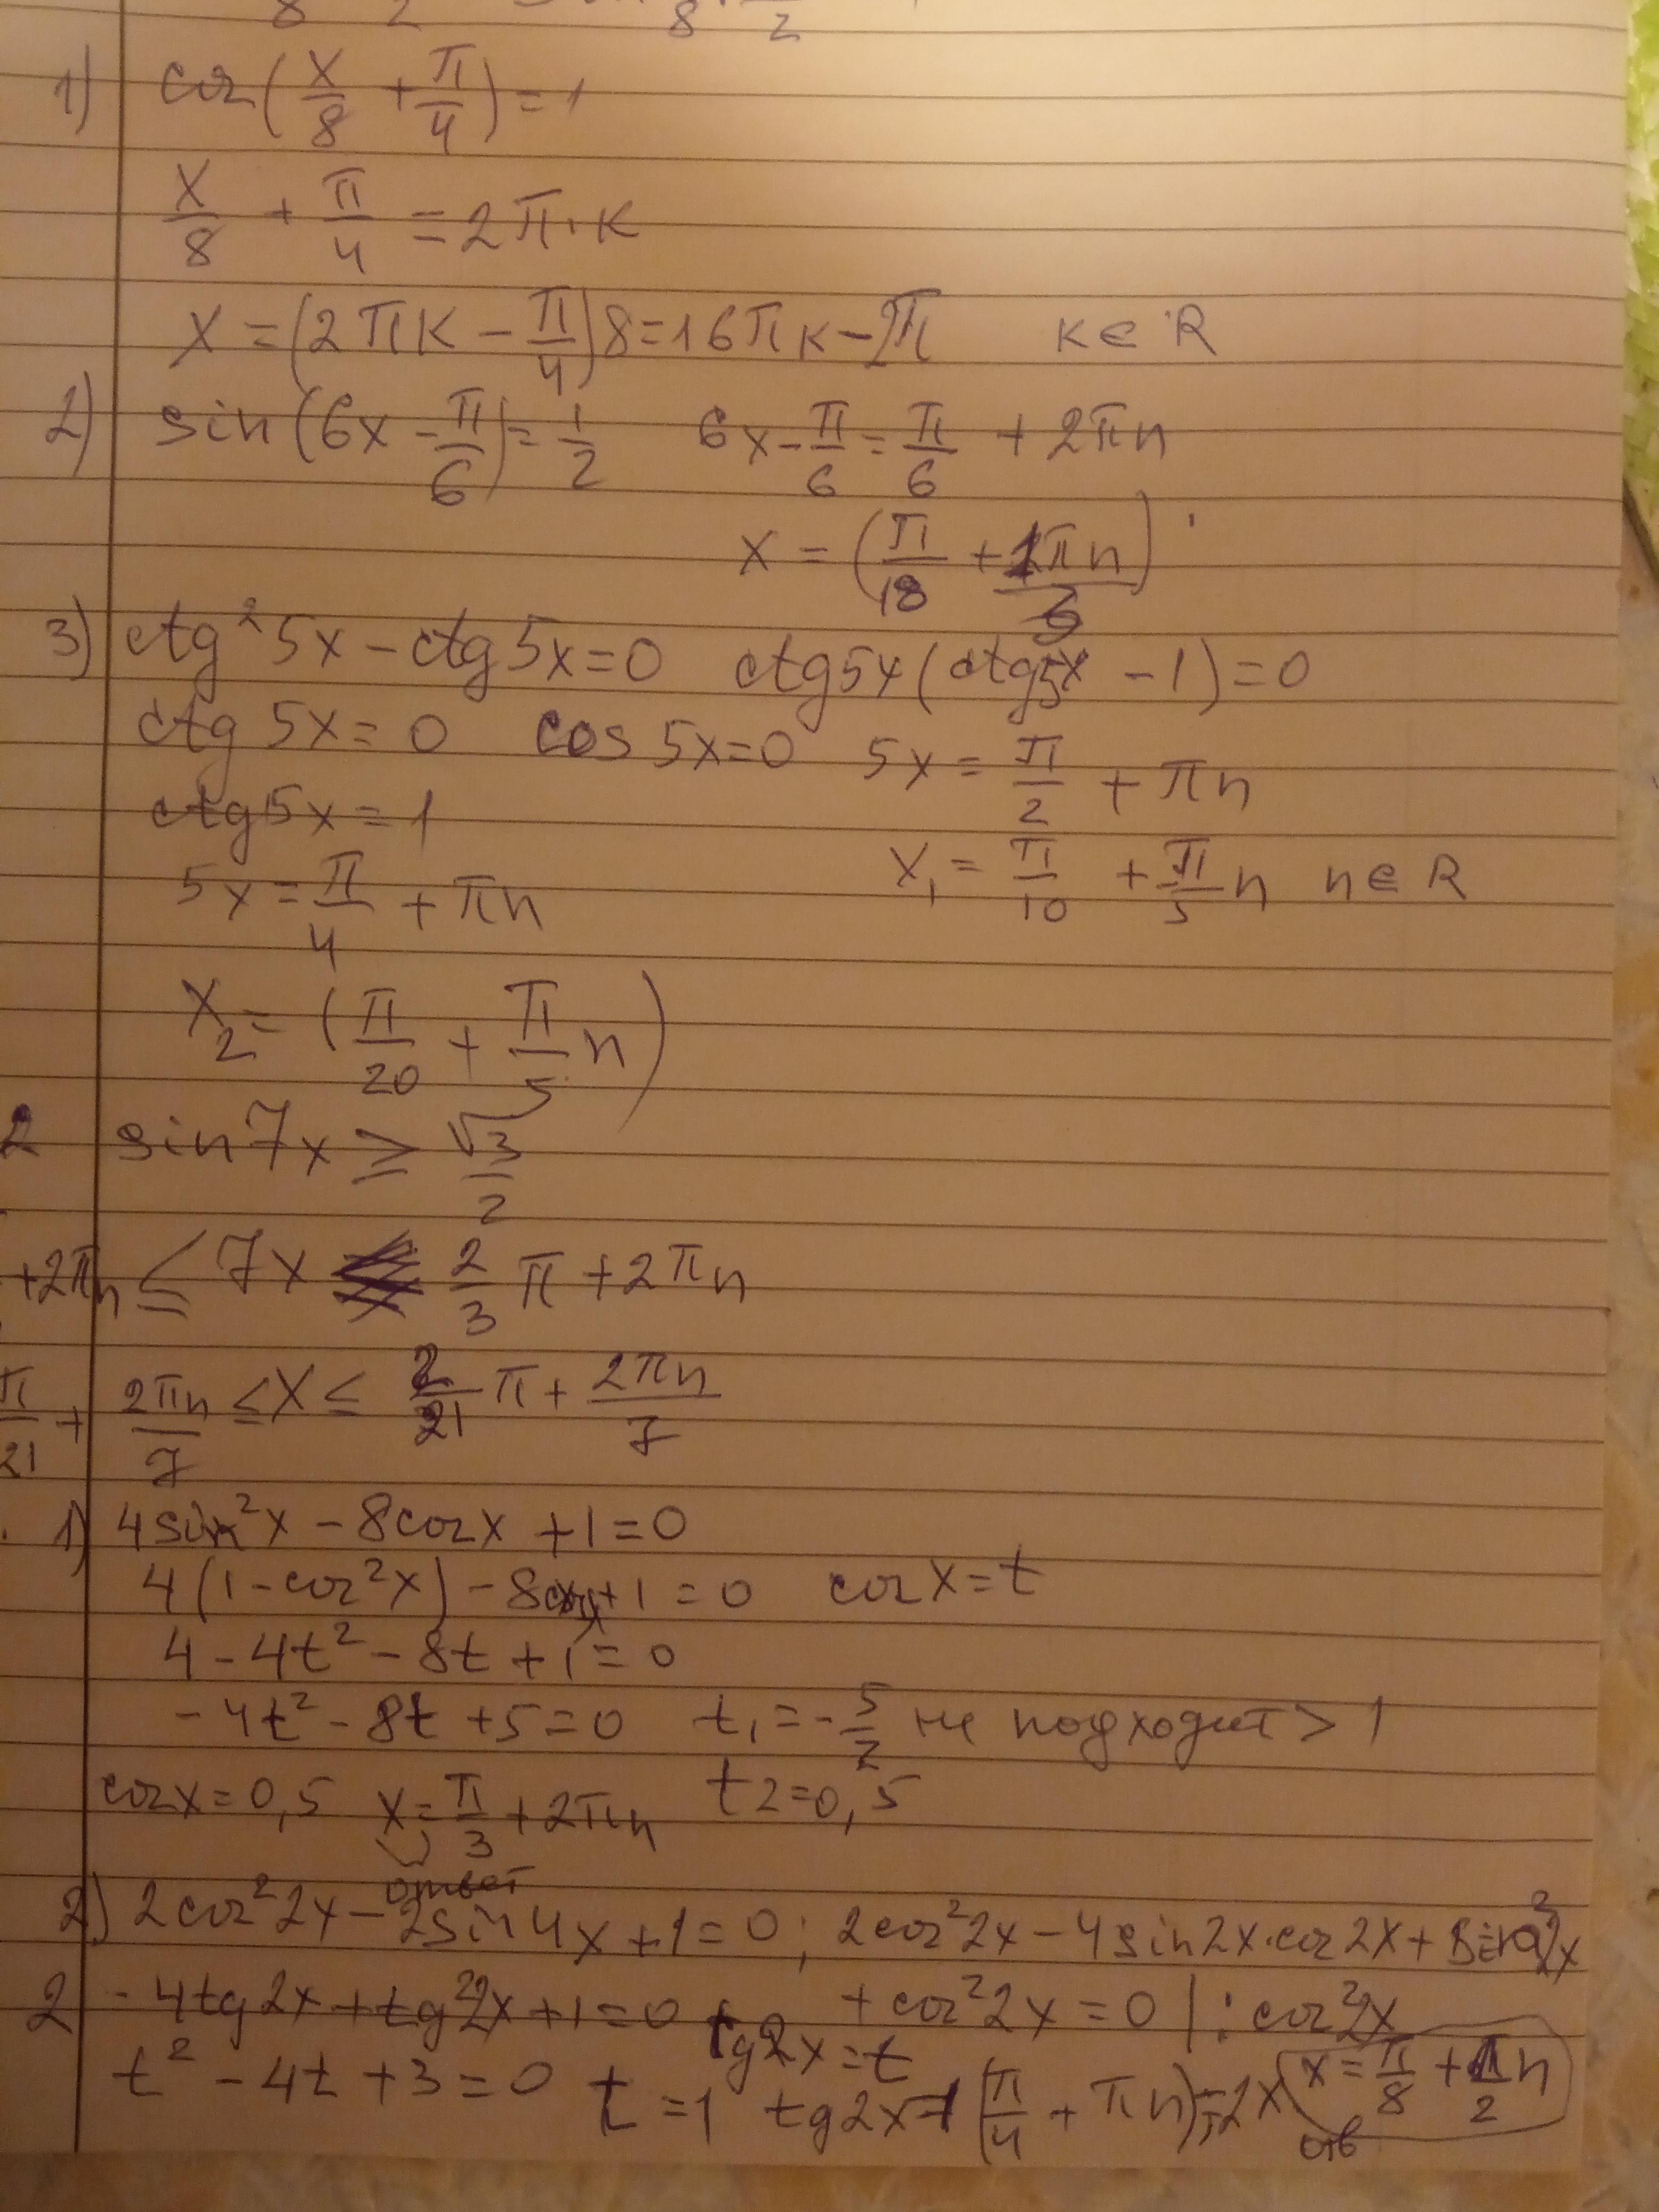 8 2 8 2
1) cos(x/8 + π/4) = 1
x/8 + π/4 = 2π·k
x = (2πk − π/4)8 = 16πk − 2π k ∈ R
2) sin(6x − π/6) = 1/2 6x − π/6 = π/6 + 2πn
x = (π/18 + 1πn/3)
3) ctg²5x − ctg5x = 0 ctg5x(ctg5x − 1) = 0
ctg 5x = 0 cos 5x = 0 5x = π/2 + πn
ctg5x = 1
5x = π/4 + πn x₁ = π/10 + π/5 n n ∈ R
x₂ = (π/20 + π/5 n)
2 sin7x ≥ √3/2
+2πn ≤ 7x ≤ 2/3 π + 2πn
π/21 + 2πn/7 ≤ x ≤ 2/21 π + 2πn/7
1) 4sin²x − 8cosx + 1 = 0
4(1 − cos²x) − 8cosx + 1 = 0 cosx = t
4 − 4t² − 8t + 1 = 0
−4t² − 8t + 5 = 0 t₁ = −5/2 не подходит > 1
cosx = 0,5 x = π/3 + 2πn t2 = 0,5
ответ
2) 2cos²2x − 2sin4x + 1 = 0; 2cos²2x − 4sin2x·cos2x + sin²2x
+ cos²2x = 0 |: cos²2x
2 − 4tg2x + tg²2x + 1 = 0 tg2x = t
t² − 4t + 3 = 0 t = 1 tg2x = 1 (π/4 + πn) = 2x x = π/8 + π/2 n
отв